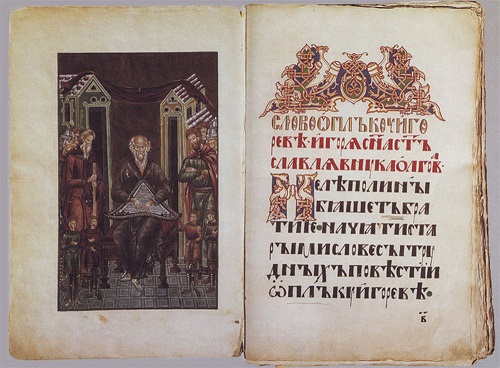 СЛОВОѠПЛЪКꙊИГО
РЕВѢ·ИГОРѦСН҃АСТЪ
СЛАВЛѦВНꙊКАОЛГОВА·
НЕЛѢПОЛИНЫ
БѦШЕТЬБРА
ТИЕ·НАЧѦТИСТА
РЫМИСЛОВЕСЫТРꙊ
ДНЫХЪПОВѢСТИИ
ѠПЛЪКꙊИГОРЕВѢ·
в҃